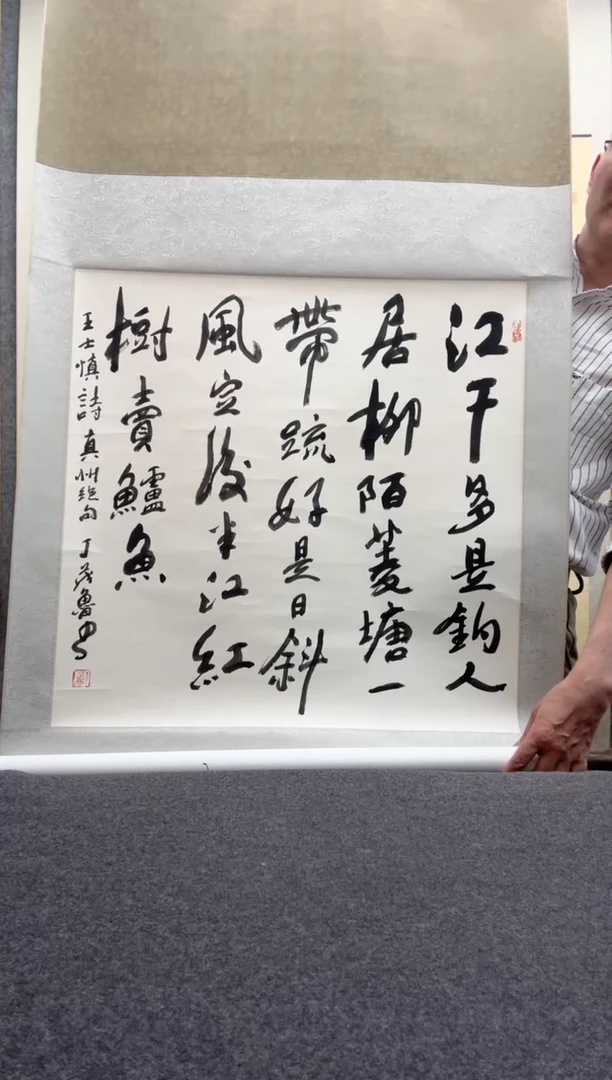 江干多是釣人
居柳陌菱塘一
帶疏好是日斜
風定後半江紅
樹賣鱸魚
王士慎詩真州絕句丁茂魯書